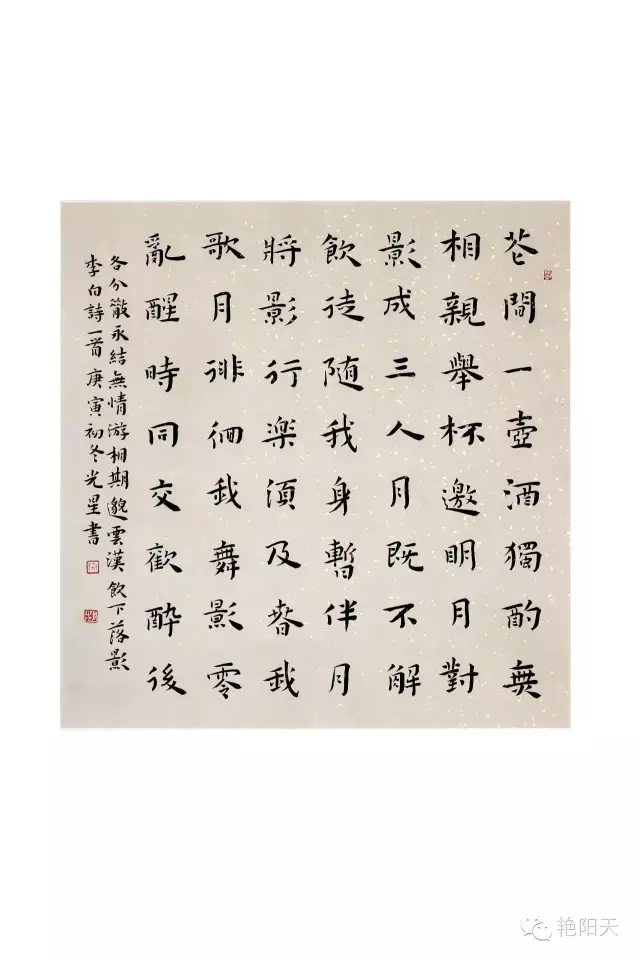 花間一壺酒獨酌無
相親舉杯邀明月對
影成三人月既不解
飲徒随我身暫伴月
將影行樂須及春我
歌月徘徊我舞影零
亂醒時同交歡酔後
各分散永結無情游相期邈雲漢 飲下落影
李白詩一首庚寅初冬光星書
艳阳天